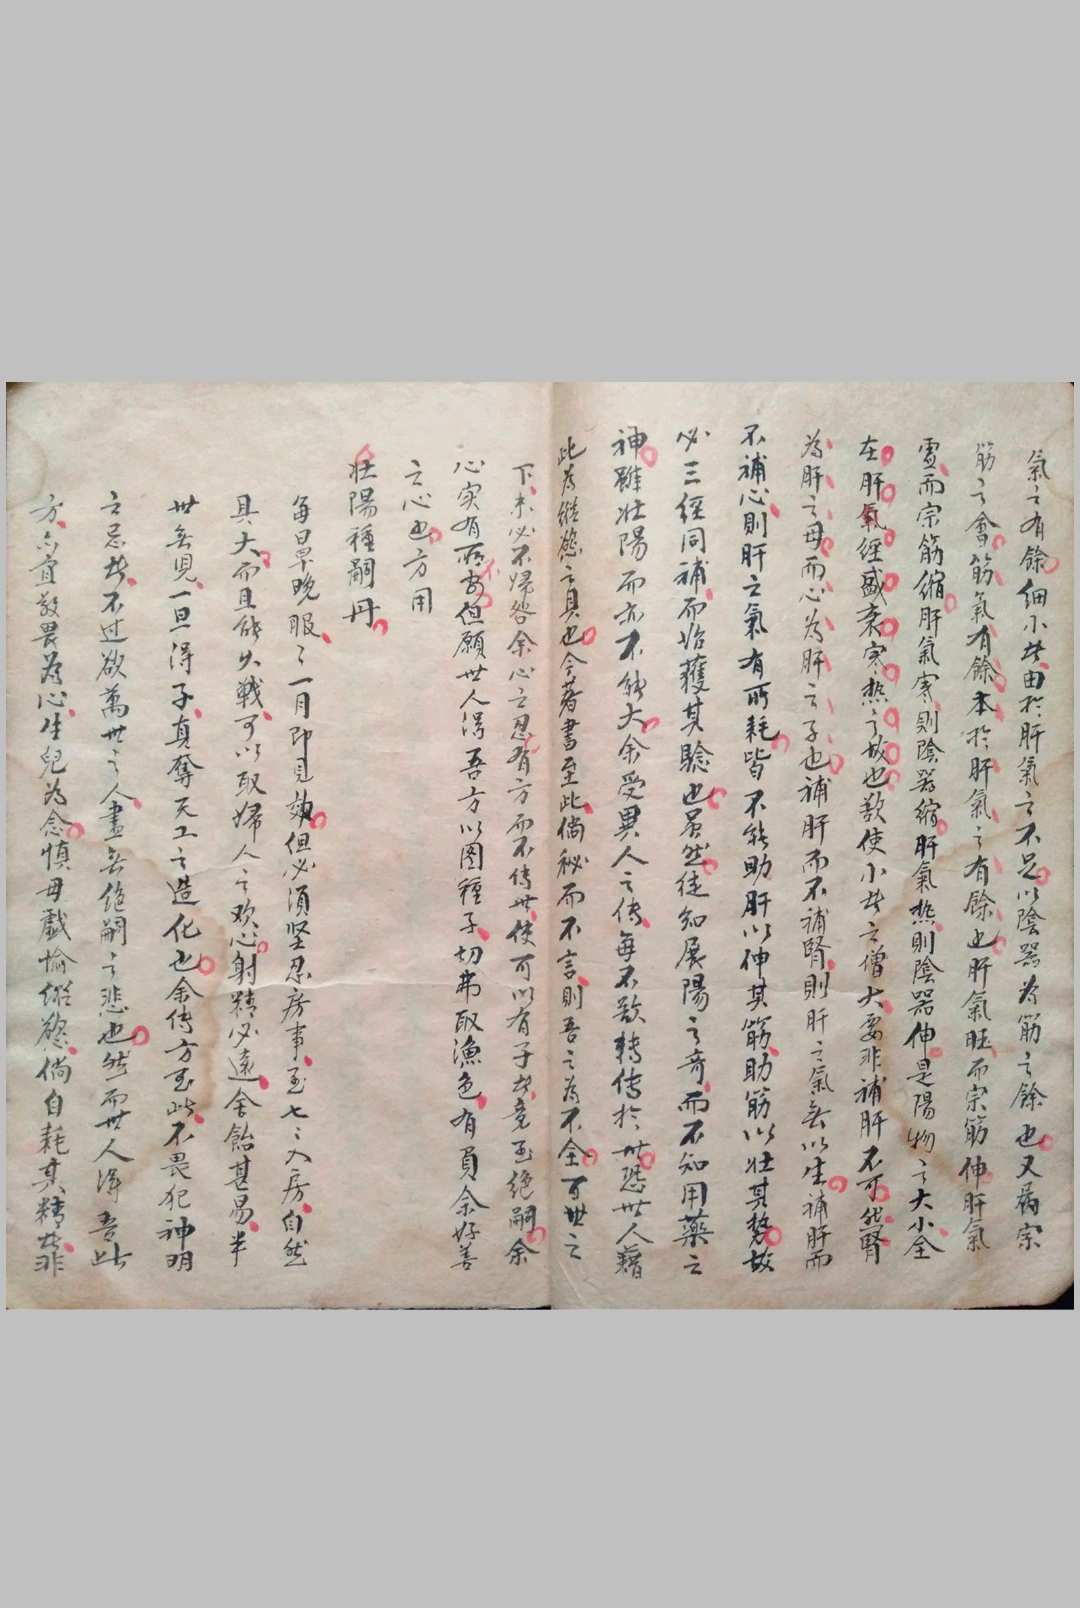 氣之有餘細小者由於肝氣之不足以陰器為筋之餘也又為宗
筋之會筋氣有餘本於肝氣之有餘也肝氣旺而宗筋伸肝氣
虛而宗筋縮肝氣寒則陰器縮肝氣熱則陰器伸是陽物之大小全
在肝氣經盛衰寒熱之故也欲使小者之增大要非補肝不可然腎
為肝之母而心為肝之子也補肝而不補腎則肝之氣無以生補肝而
不補心則肝之氣有所耗皆不能助肝以伸其筋助筋以壯其勢故
必三經同補而始獲其驗也虽然徒知展陽之奇而不知用藥之
神雖壯陽而亦不能大余受異人之傳每不欲轉傳於世恐世人藉
此為縱慾之具也今著書至此倘秘而不言則吾之為不全万世之
下未必不歸咎余心之忍有方而不傳世使可以有子者竟至絕嗣余
心实有所不安但願世人得吾方以圖種子切弗取漁色有負余好善
之心也方用
壯陽種嗣丹
每日早晚服之一月即見效但必須坚忍房事至七七入房自然
具大而且能久戰可以取婦人之欢心射精必遠含飴甚易半
世無兒一旦得子真奪天工之造化也余傳方至此不畏犯神明
之忌者不过欲萬世之人盡無絕嗣之悲也然而世人得吾此
方亦宜敬畏為心生兒為念慎毋戲愉縱慾倘自耗其精者非